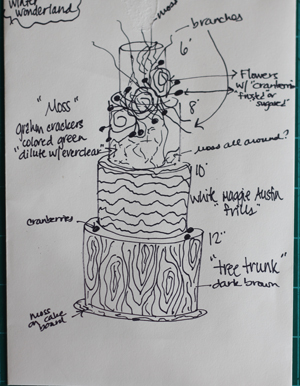 winter
wonderland
moss
branches
6"
Flowers
w/ "cranberries"
frosted or
sugared
"Moss"
graham crackers
"colored green"
"dilute w/ everclear"
8"
moss all around?
10"
White Maggie Austin
"frills"
cranberries
12"
"tree trunk"
dark brown
moss
on cake
board